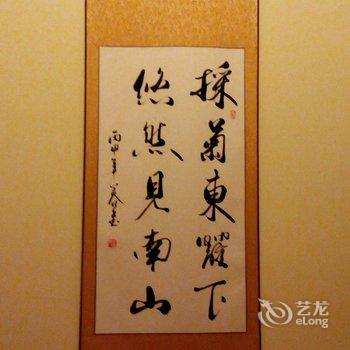 採菊東籬下
悠然見南山
丙申年
艺龙
eLong